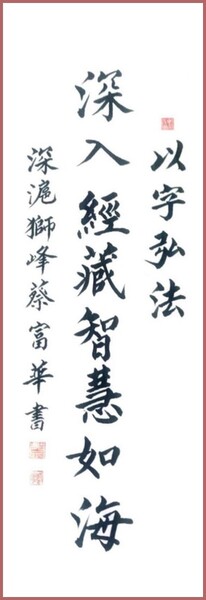 以字弘法
深入經藏智慧如海
深滬獅峰蔡富華書